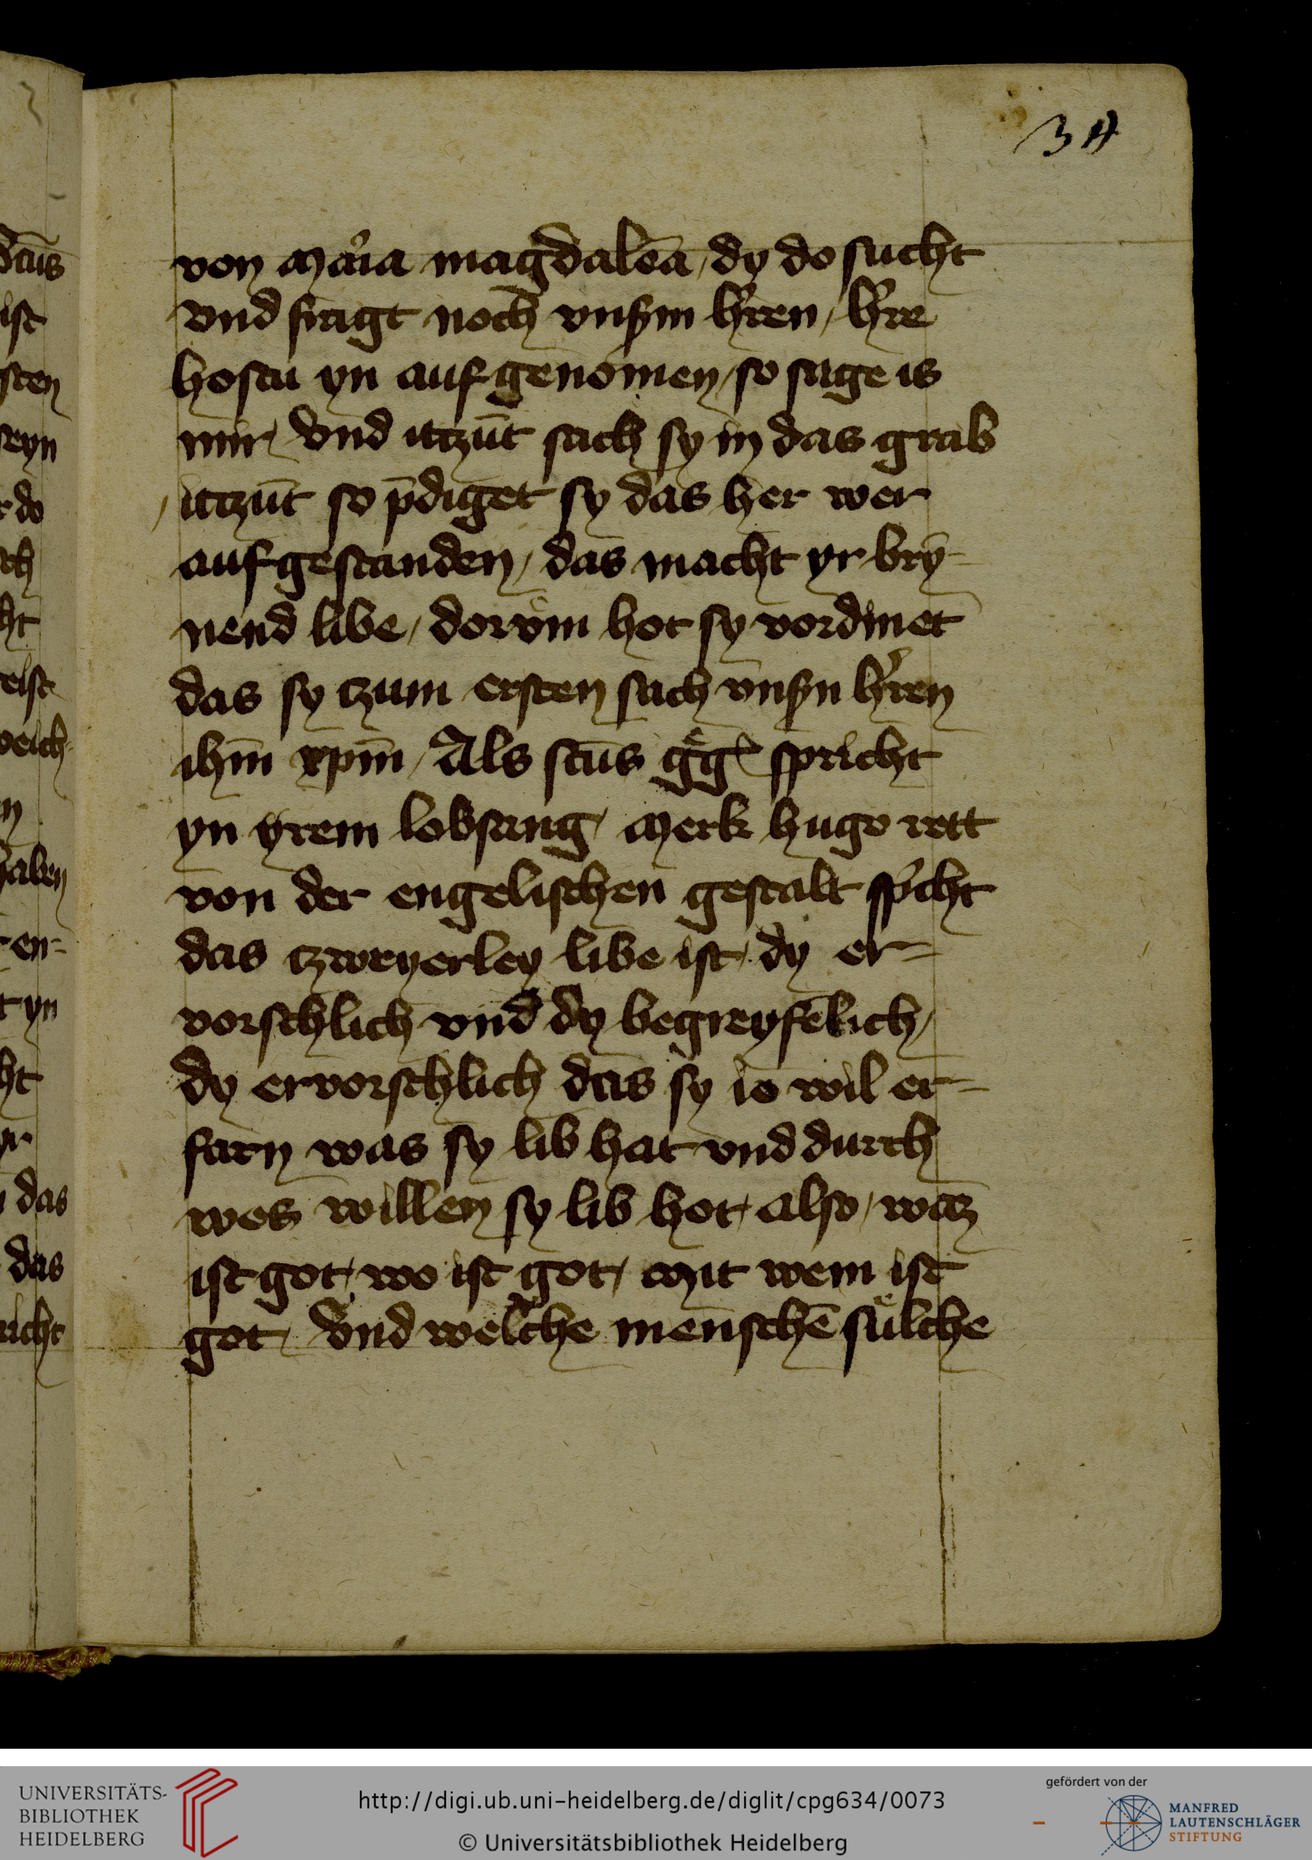 34
von maria magdalēa, dy do sucht
vnd fragt noch vnßm hʼren, hʼre
hostu yn aufgenōmen, so sage is
mir, Vnd itczūt sach sy in das grab
itczūt so p̄diget sy das her wer
aufgestanden, das macht yr brȳ-
nend libe, dorvm hot sy vordinet
das sy czum ersten sach vnßn hʼren
ihm̄ xpm̄, Als sctūs gʼgʼ spricht
yn yrem lobsang, merk hugo rett
von der engelischen gestalt spʼcht
das czweyerley libe ist, dy er-
vorschlich vnd dy begreyfēlich,
dy ervorschlich das sy io wil er-
farn was sy lib hat vnd durch
wes willen sy lib hot, also, wacz
ist got, wo ist got, mit wem ist
got, Vnd welche menschē sulche
UNIVERSITÄTS-
BIBLIOTHEK
HEIDELBERG
http://digi.ub.uni-heidelberg.de/diglit/cpg634/0073
© Universitätsbibliothek Heidelberg
gefördert von der
MANFRED
LAUTENSCHLÄGER
STIFTUNG